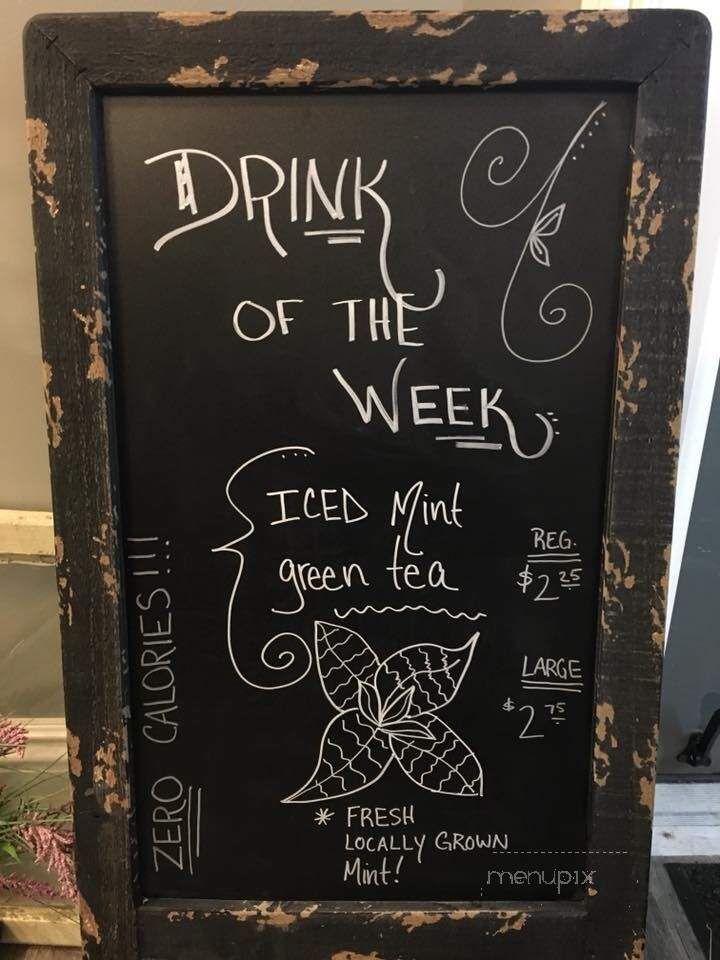 DRINK
OF THE
WEEK
ICED Mint
green tea
REG.
$2 25
LARGE
$2 75
ZERO CALORIES!!!
* FRESH
LOCALLY GROWN
Mint!
menupix